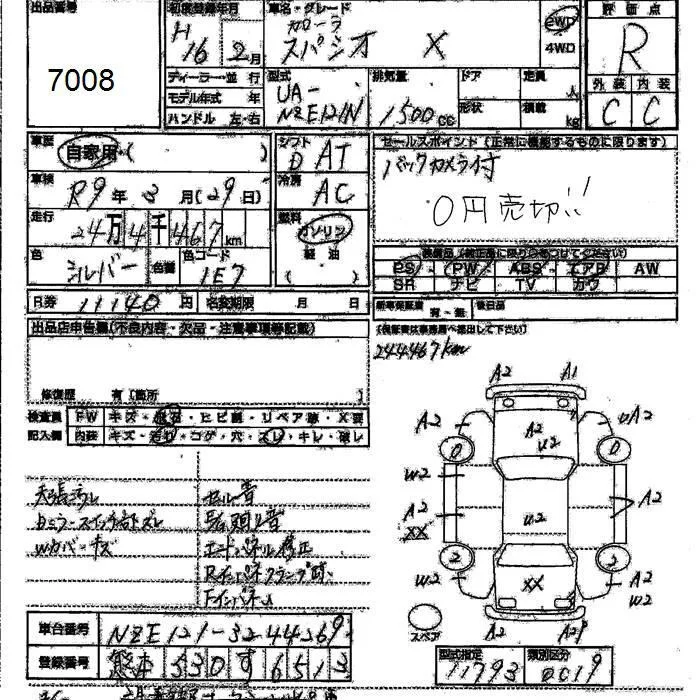 出品番号
7008
初度登録年月
H
16 2月
車名・グレード
カローラ
スパシオ X
2WD
4WD
評価点
R
外装 内装
C C
ディーラー・並行
モデル年式 年
ハンドル 左・右
型式
UA-
NZE121N
排気量
1500cc
ドア
形状
定員
人
積載
kg
車歴
自家用( )
シフト
D AT
車検
R9年3月(29日)
冷房
AC
走行
24万4千467km
燃料
ガソリン
軽油
( )
色
シルバー
色替
色コード
1E7
R券 11140円 名変期限 月 日
セールスポイント(正常に機能するものに限ります)
バックカメラ付
0円売切!!
装備品(純正品に限り○をつけてください)
PS PW ABS エアB AW
SR ナビ TV カワ
新車保証書 有・無 後日品
(保証書は事務局へ提出して下さい)
244467km
出品店申告欄(不良内容・欠品・注意事項等記載)
修復歴 有(箇所 )
検査員 FW キズ・飛石・ヒビ割・リペア跡・X要
記入欄 内装 キズ・汚れ・コゲ・穴・スレ・キレ・破レ
天張汚れ
セル音
Wカバーキズ
エンドパネル修正
A2 A1
A2 A2 U2 DA2
0 0
W2
A2 U2 A2
XX
2 2
W2 XX A2
W2
スペア
A2 A2
車台番号 NZE121-3244269
登録番号 熊本 530 す 6513
型式指定 類別区分
11793 0019